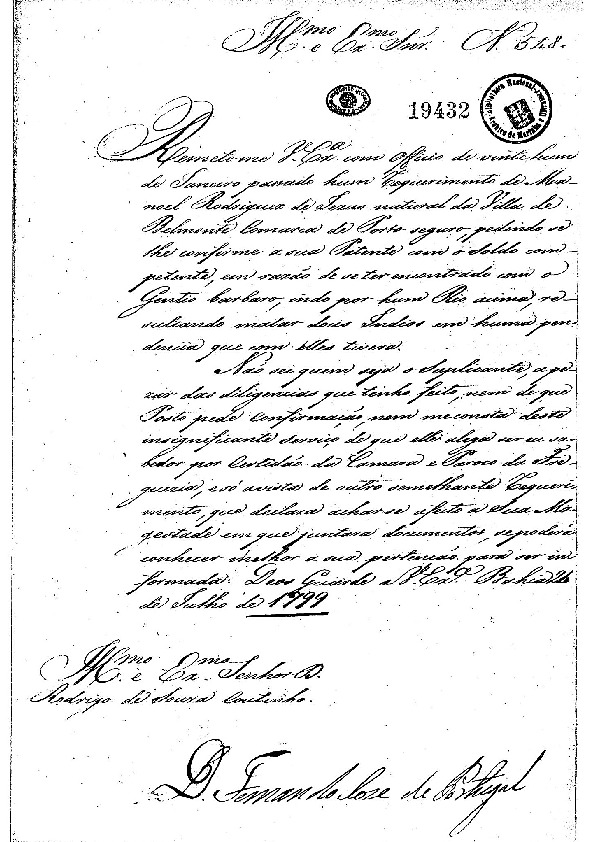 Ill.mo e Ex.mo Snr. N. 548.
19432
Remete-me V.Ex.ca com officio de vinte hum
de Janeiro passado hum Requerimento de Ma-
noel Rodrigues de Jesus natural da Villa de
Belmonte Comarca de Porto seguro, pedindo se
lhe confirme a sua Patente com o soldo com-
petente, em razão de se ter encontrado com o
Gentio barbaro, indo por hum Rio acima, re-
sultando matar dous Indios em huma pen-
dencia que com elles tivera.
Não sei quem seja o Suplicante, a pe-
zar das diligencias que tenho feito, nem de que
Posto pede confirmação, nem me consta deste
insignificante serviço de que elle alega ser eu sa-
bedor por Certidão da Camara e Paroco da Fre-
guezia, e só a vista de outro semelhante Requeri-
mento, que declara achar-se afecto a Sua Ma-
gestade em que juntara documentos, se poderá
conhecer melhor a sua pertenção para ser in-
formada. Deos Guarde a V.Ex.ca Bahia 26
de Julho de 1799
Ill.mo e Ex.mo Senhor D.
Rodrigo de Souza Coutinho.
D. Fernando Jose de Portugal